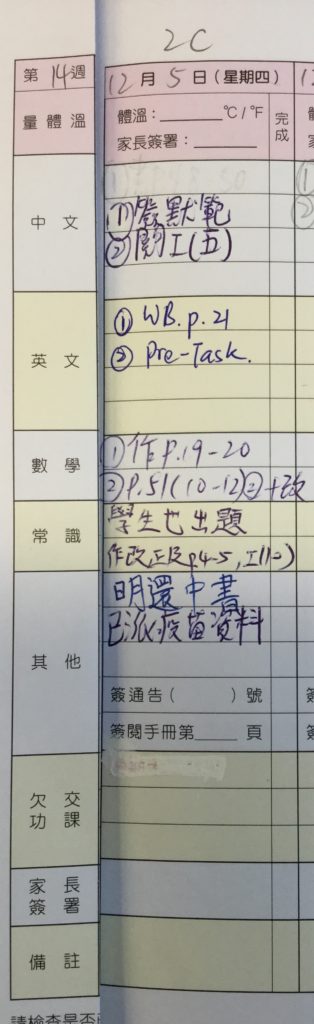 2C
第14週
12月5日(星期四)
量體溫
體溫：______℃/℉
家長簽署：______
完成
中文
(1)聲默範
②閱工(五)
英文
① WB.p.21
② Pre-Task.
數學
①作P.19-20
②P.51(10-12)②+改
常識
學生也出題
作改,正及p4-5,工(1)
其他
明還中書
已派疫苗資料
簽通告(　　)號
簽閱手冊第____頁
欠交功課
家長簽署
備註